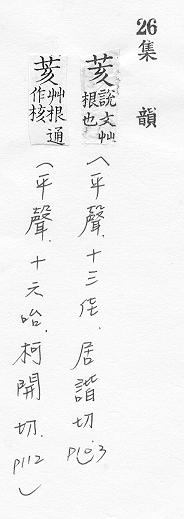 26集 韻
荄說文艸根也(平聲.十三佳.居諧切.P103)
荄艸根通作核(平聲.十六咍.柯開切.P112)